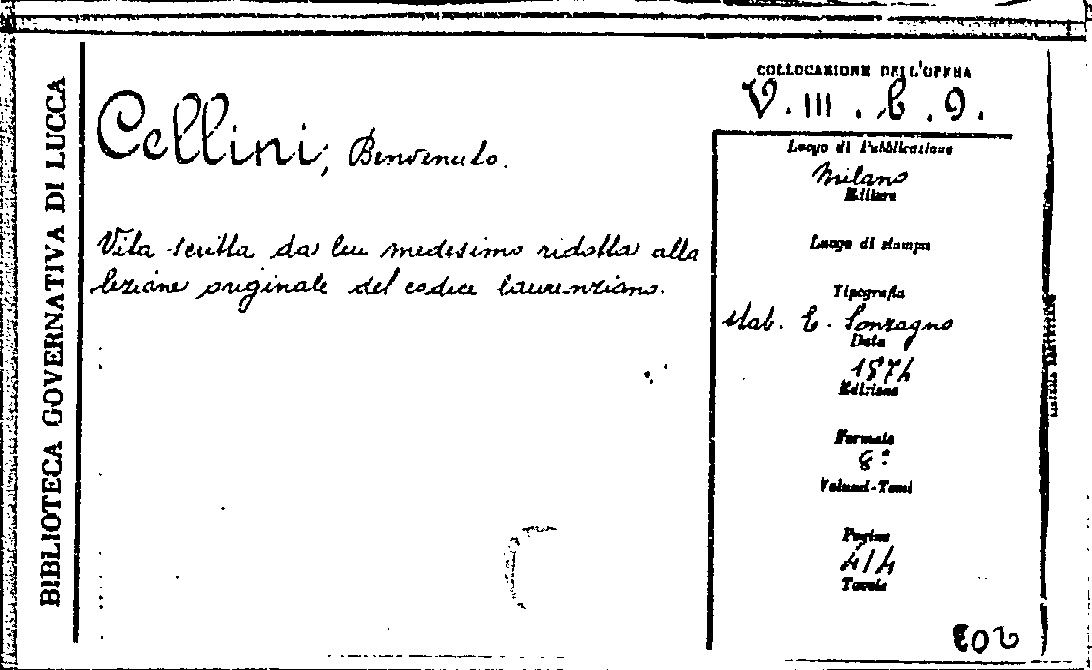 BIBLIOTECA GOVERNATIVA DI LUCCA
Cellini, Benvenuto.
Vita scritta da lui medesimo ridotta alla
lezione originale del codice laurenziano.
COLLOCAZIONE DELL'OPERA
V. III. b. 9.
Luogo di Pubblicazione
Milano
Editore
Luogo di stampa
Tipografia
Stab. E. Sonzogno
Data
1874
Edizione
Formato
8º
Volumi-Tomi
Pagine
414
Tavole